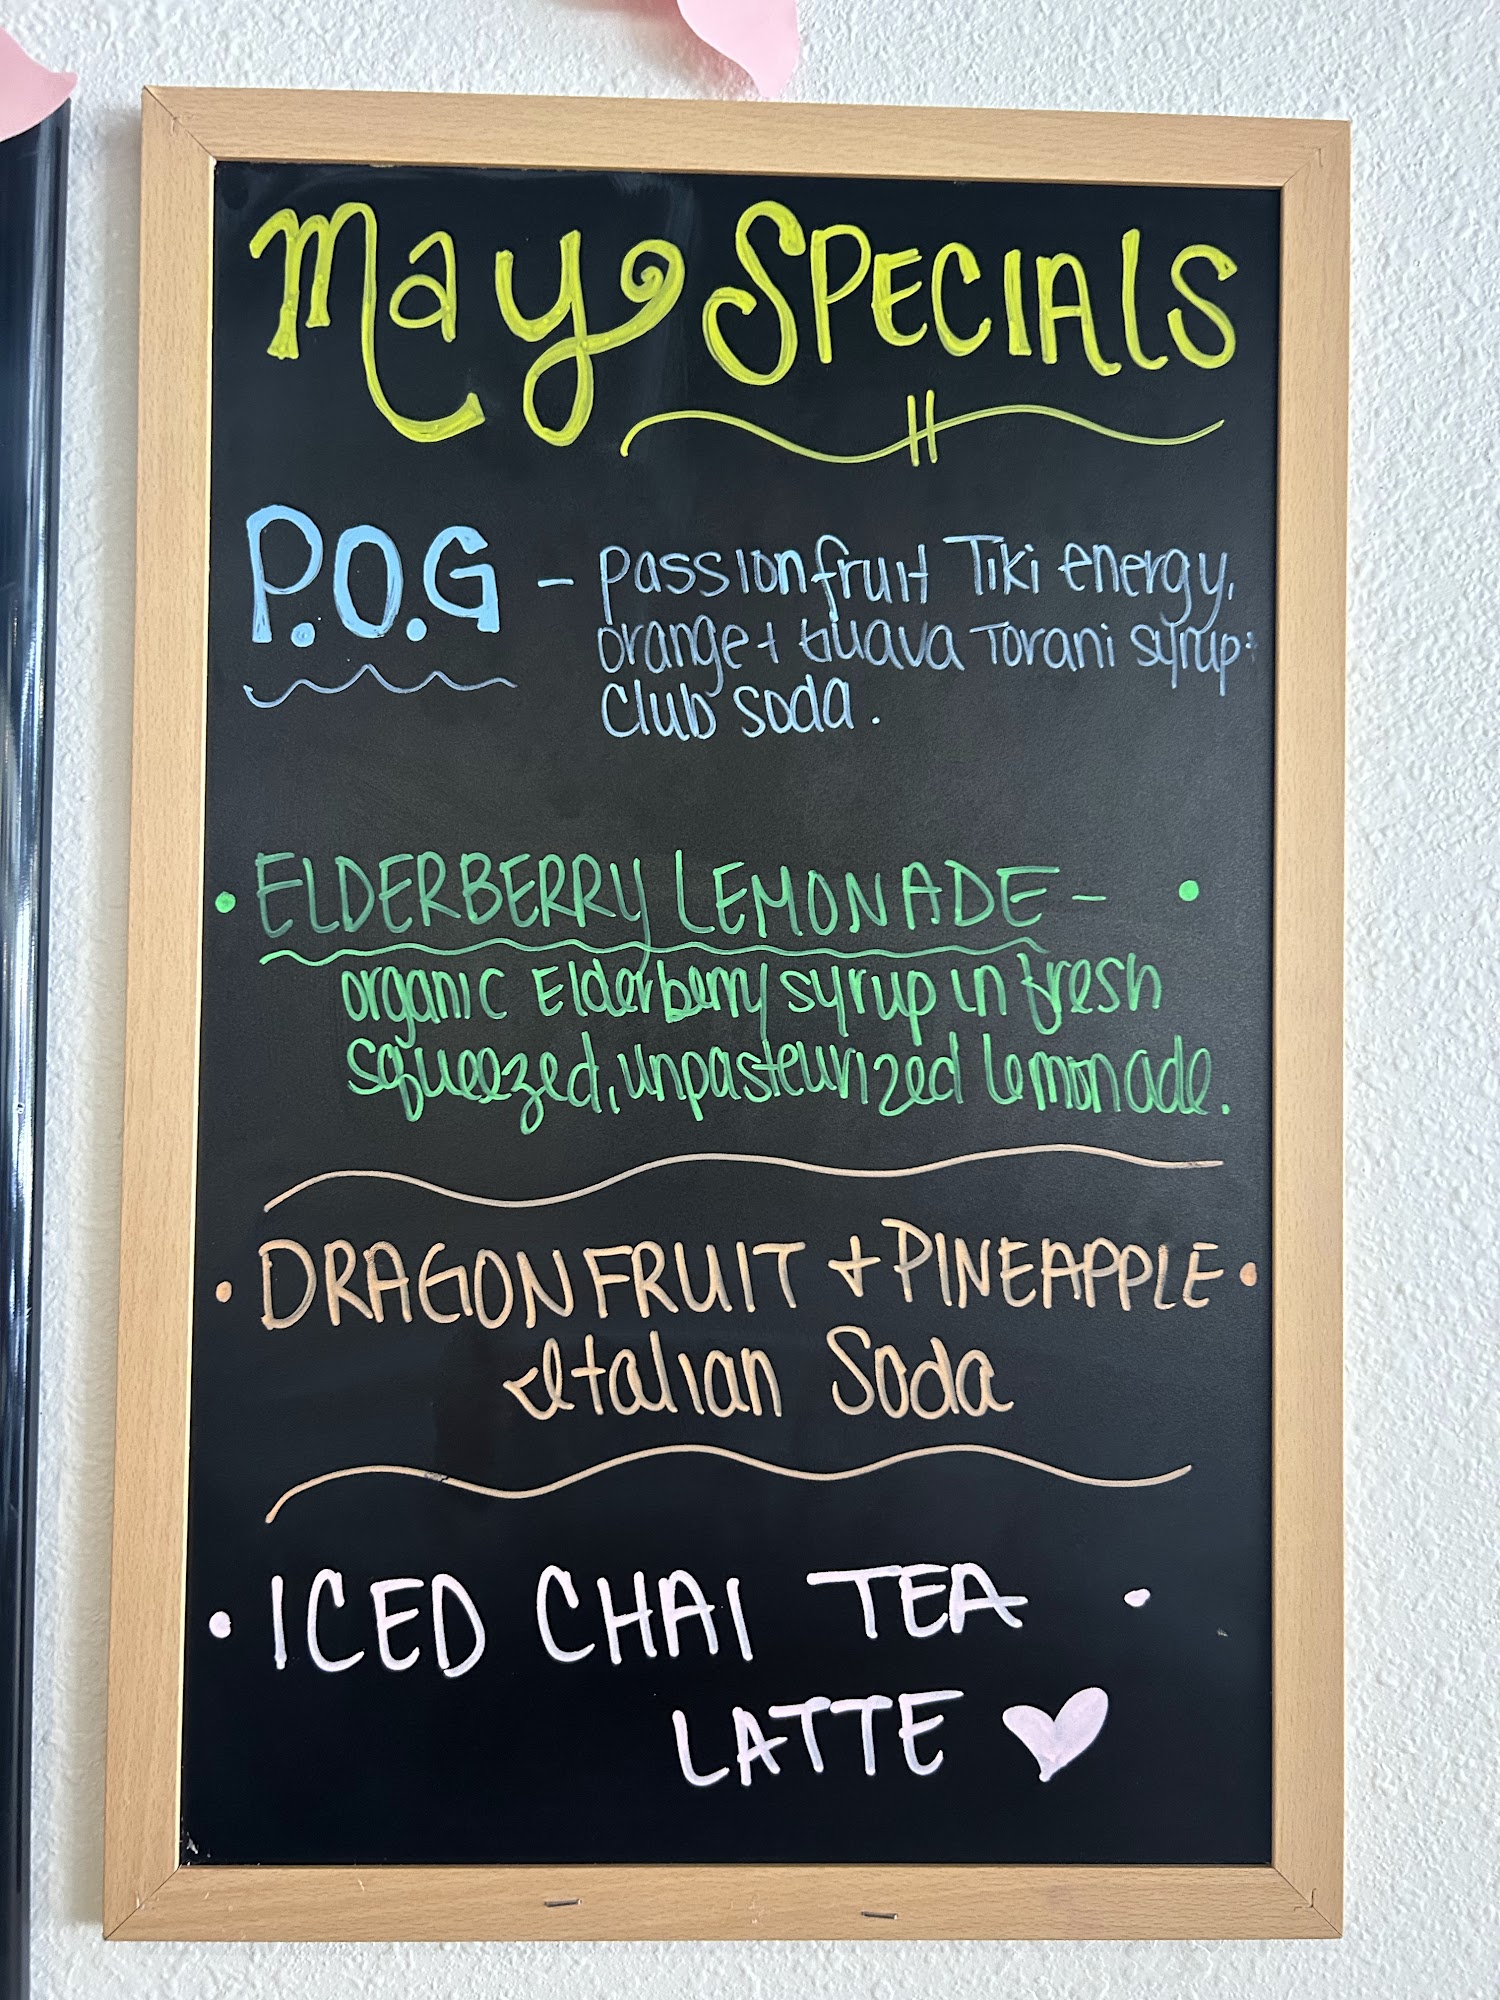 May SPECIALS
P.O.G - passionfruit Tiki energy,
orange + Guava Torani syrup:
Club soda.
• ELDERBERRY LEMONADE - •
organic Elderberry syrup in fresh
squeezed, unpasteurized lemonade.
• DRAGONFRUIT + PINEAPPLE •
Italian Soda
• ICED CHAI TEA •
LATTE ♥